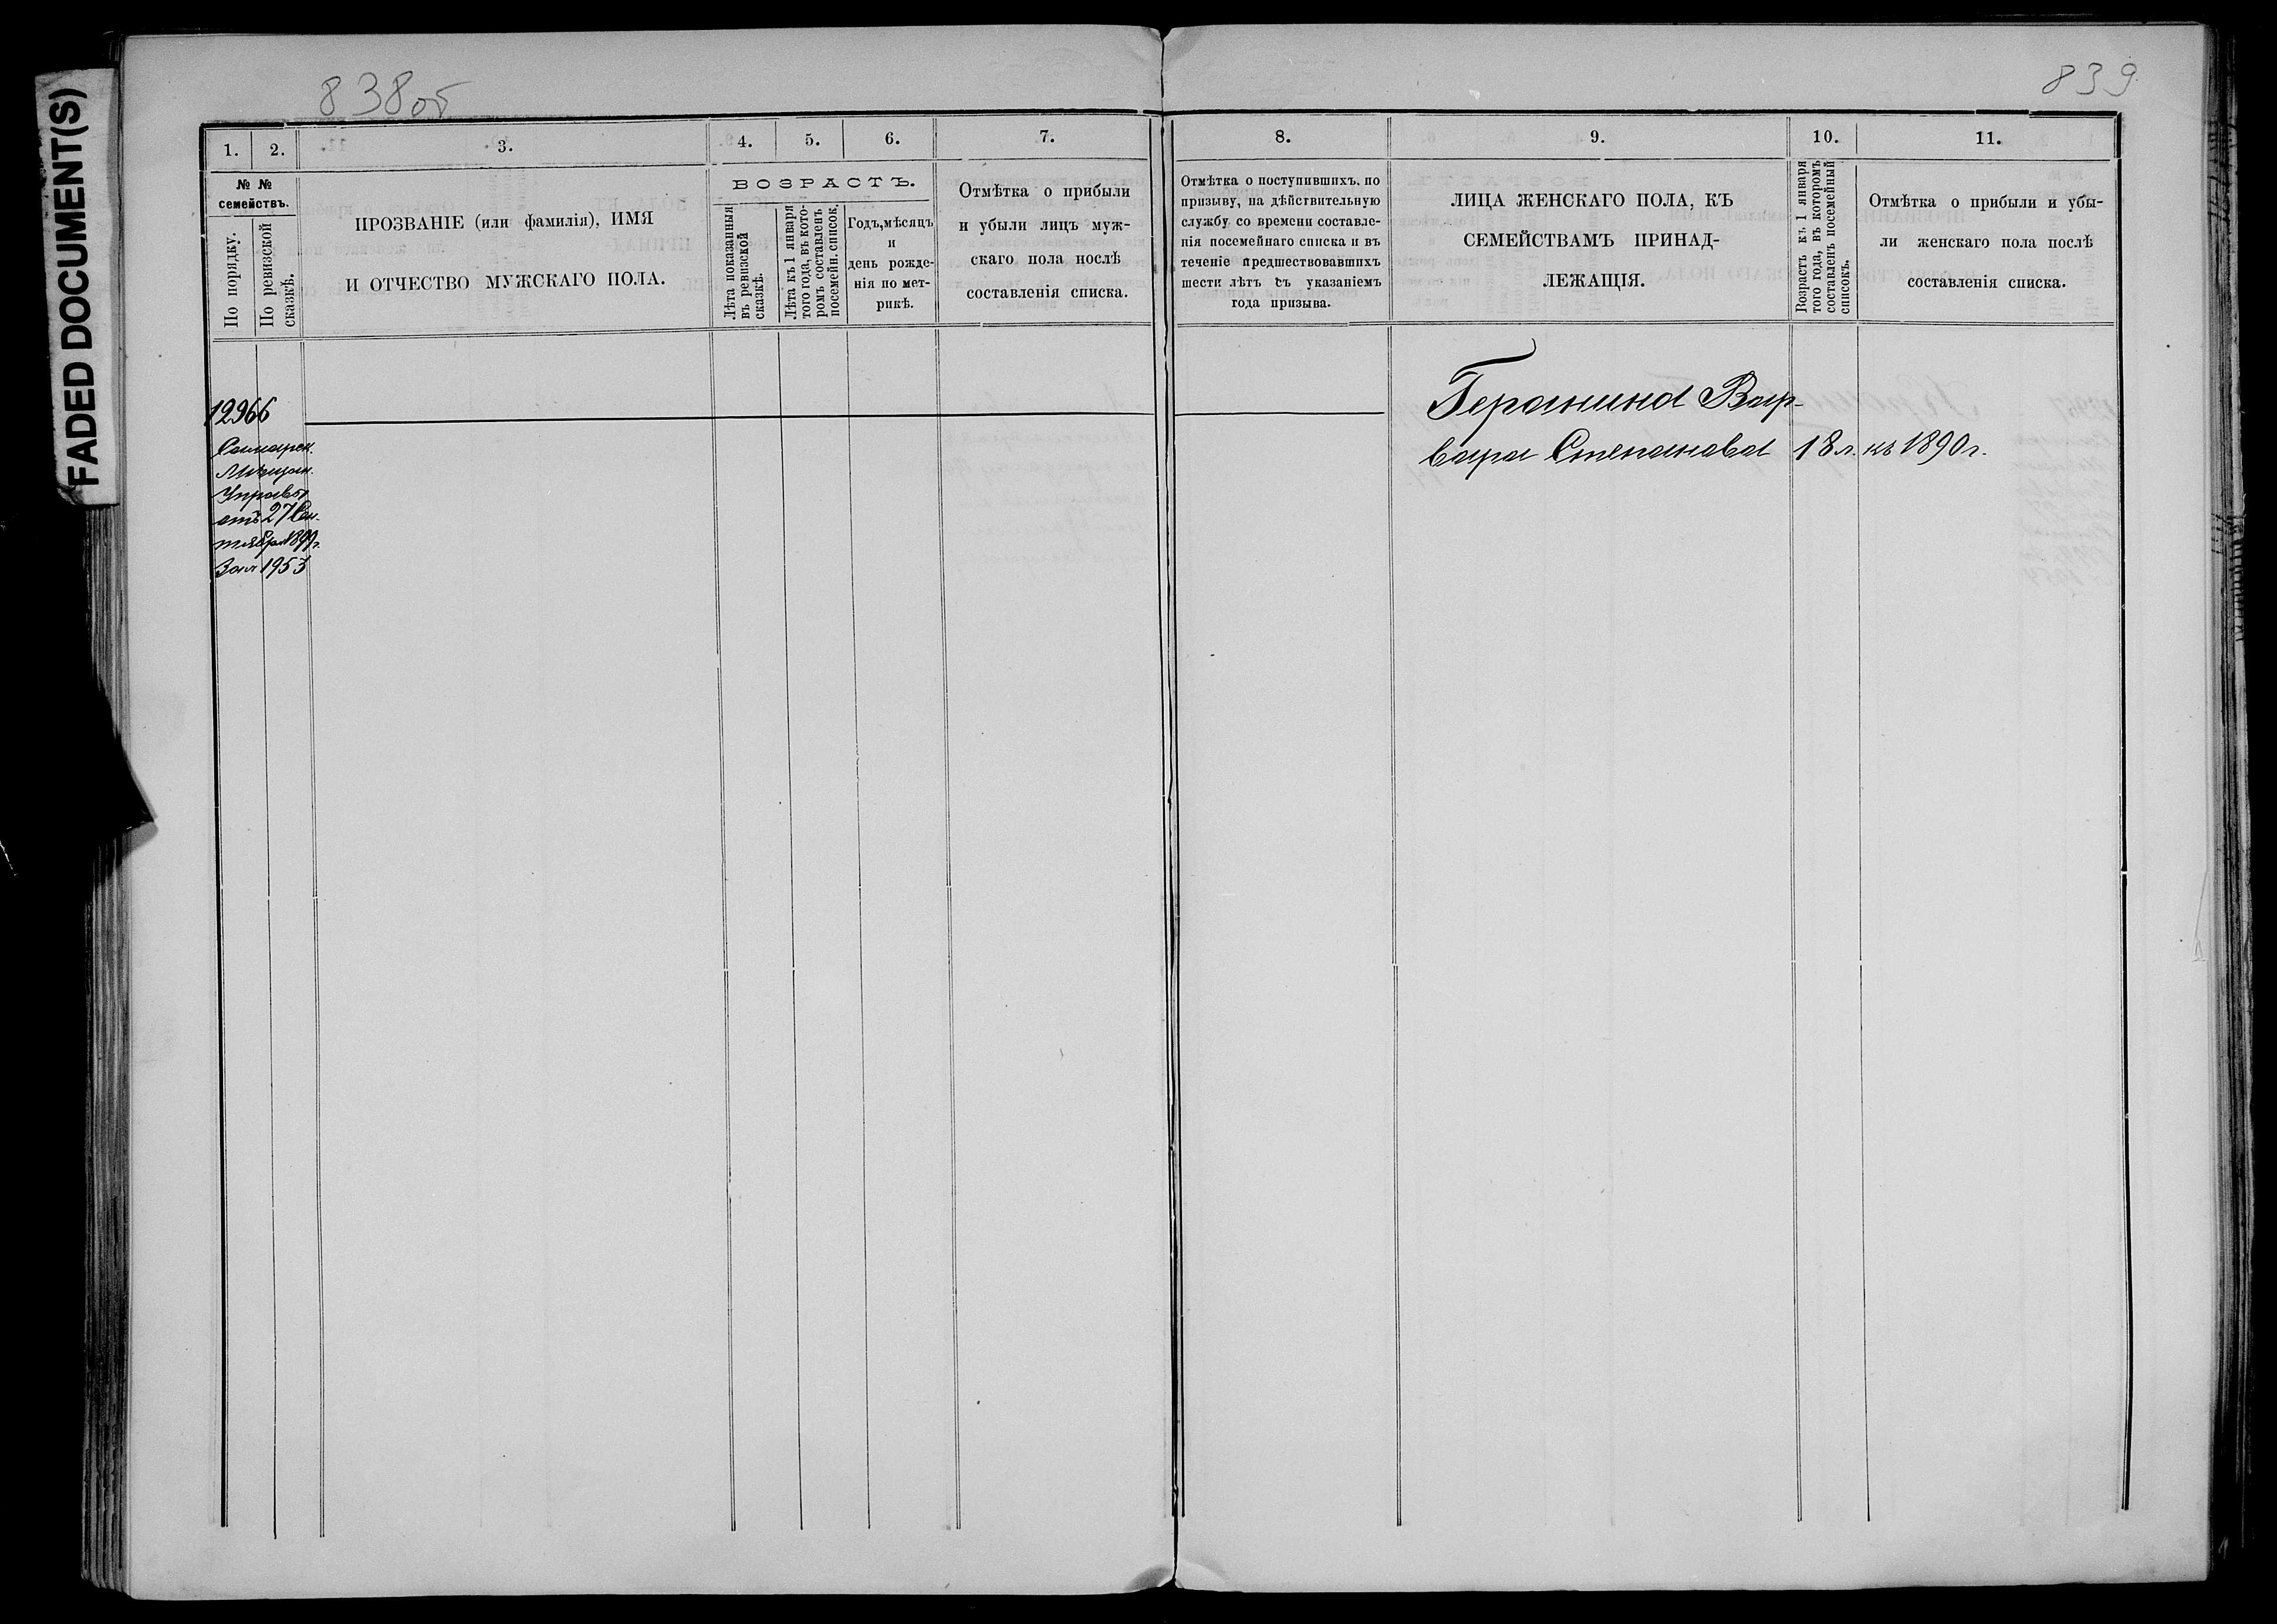 FADED DOCUMENT(S)
838об
839
1.
2.
3.
4.
5.
6.
7.
8.
9.
10.
11.
№ №
семействъ.
По порядку.
По ревизской
сказкѣ.
ПРОЗВАНІЕ (или фамилія), ИМЯ
И ОТЧЕСТВО МУЖСКАГО ПОЛА.
ВОЗРАСТЪ.
Лѣта показанныя
въ ревизской
сказкѣ.
Лѣта къ 1 января
того года, въ кото-
ромъ составленъ
посемейн. список.
Годъ, мѣсяцъ
и
день рожде-
нія по мет-
рикѣ.
Отмѣтка о прибыли
и убыли лицъ муж-
скаго пола послѣ
составленія списка.
Отмѣтка о поступившихъ, по
призыву, на дѣйствительную
службу со времени составле-
нія посемейнаго списка и въ
теченіе предшествовавшихъ
шести лѣтъ съ указаніемъ
года призыва.
ЛИЦА ЖЕНСКАГО ПОЛА, КЪ
СЕМЕЙСТВАМЪ ПРИНАД-
ЛЕЖАЩІЯ.
Возрастъ къ 1 января
того года, въ которомъ
составленъ посемейный
списокъ.
Отмѣтка о прибыли и убы-
ли женскаго пола послѣ
составленія списка.
12966
Самарск.
Мѣщан.
Управы
отъ 27 Сен-
тября 1899 г.
За № 1953
Гераниna Вар-
вара Степанова 18 л. къ 1890 г.